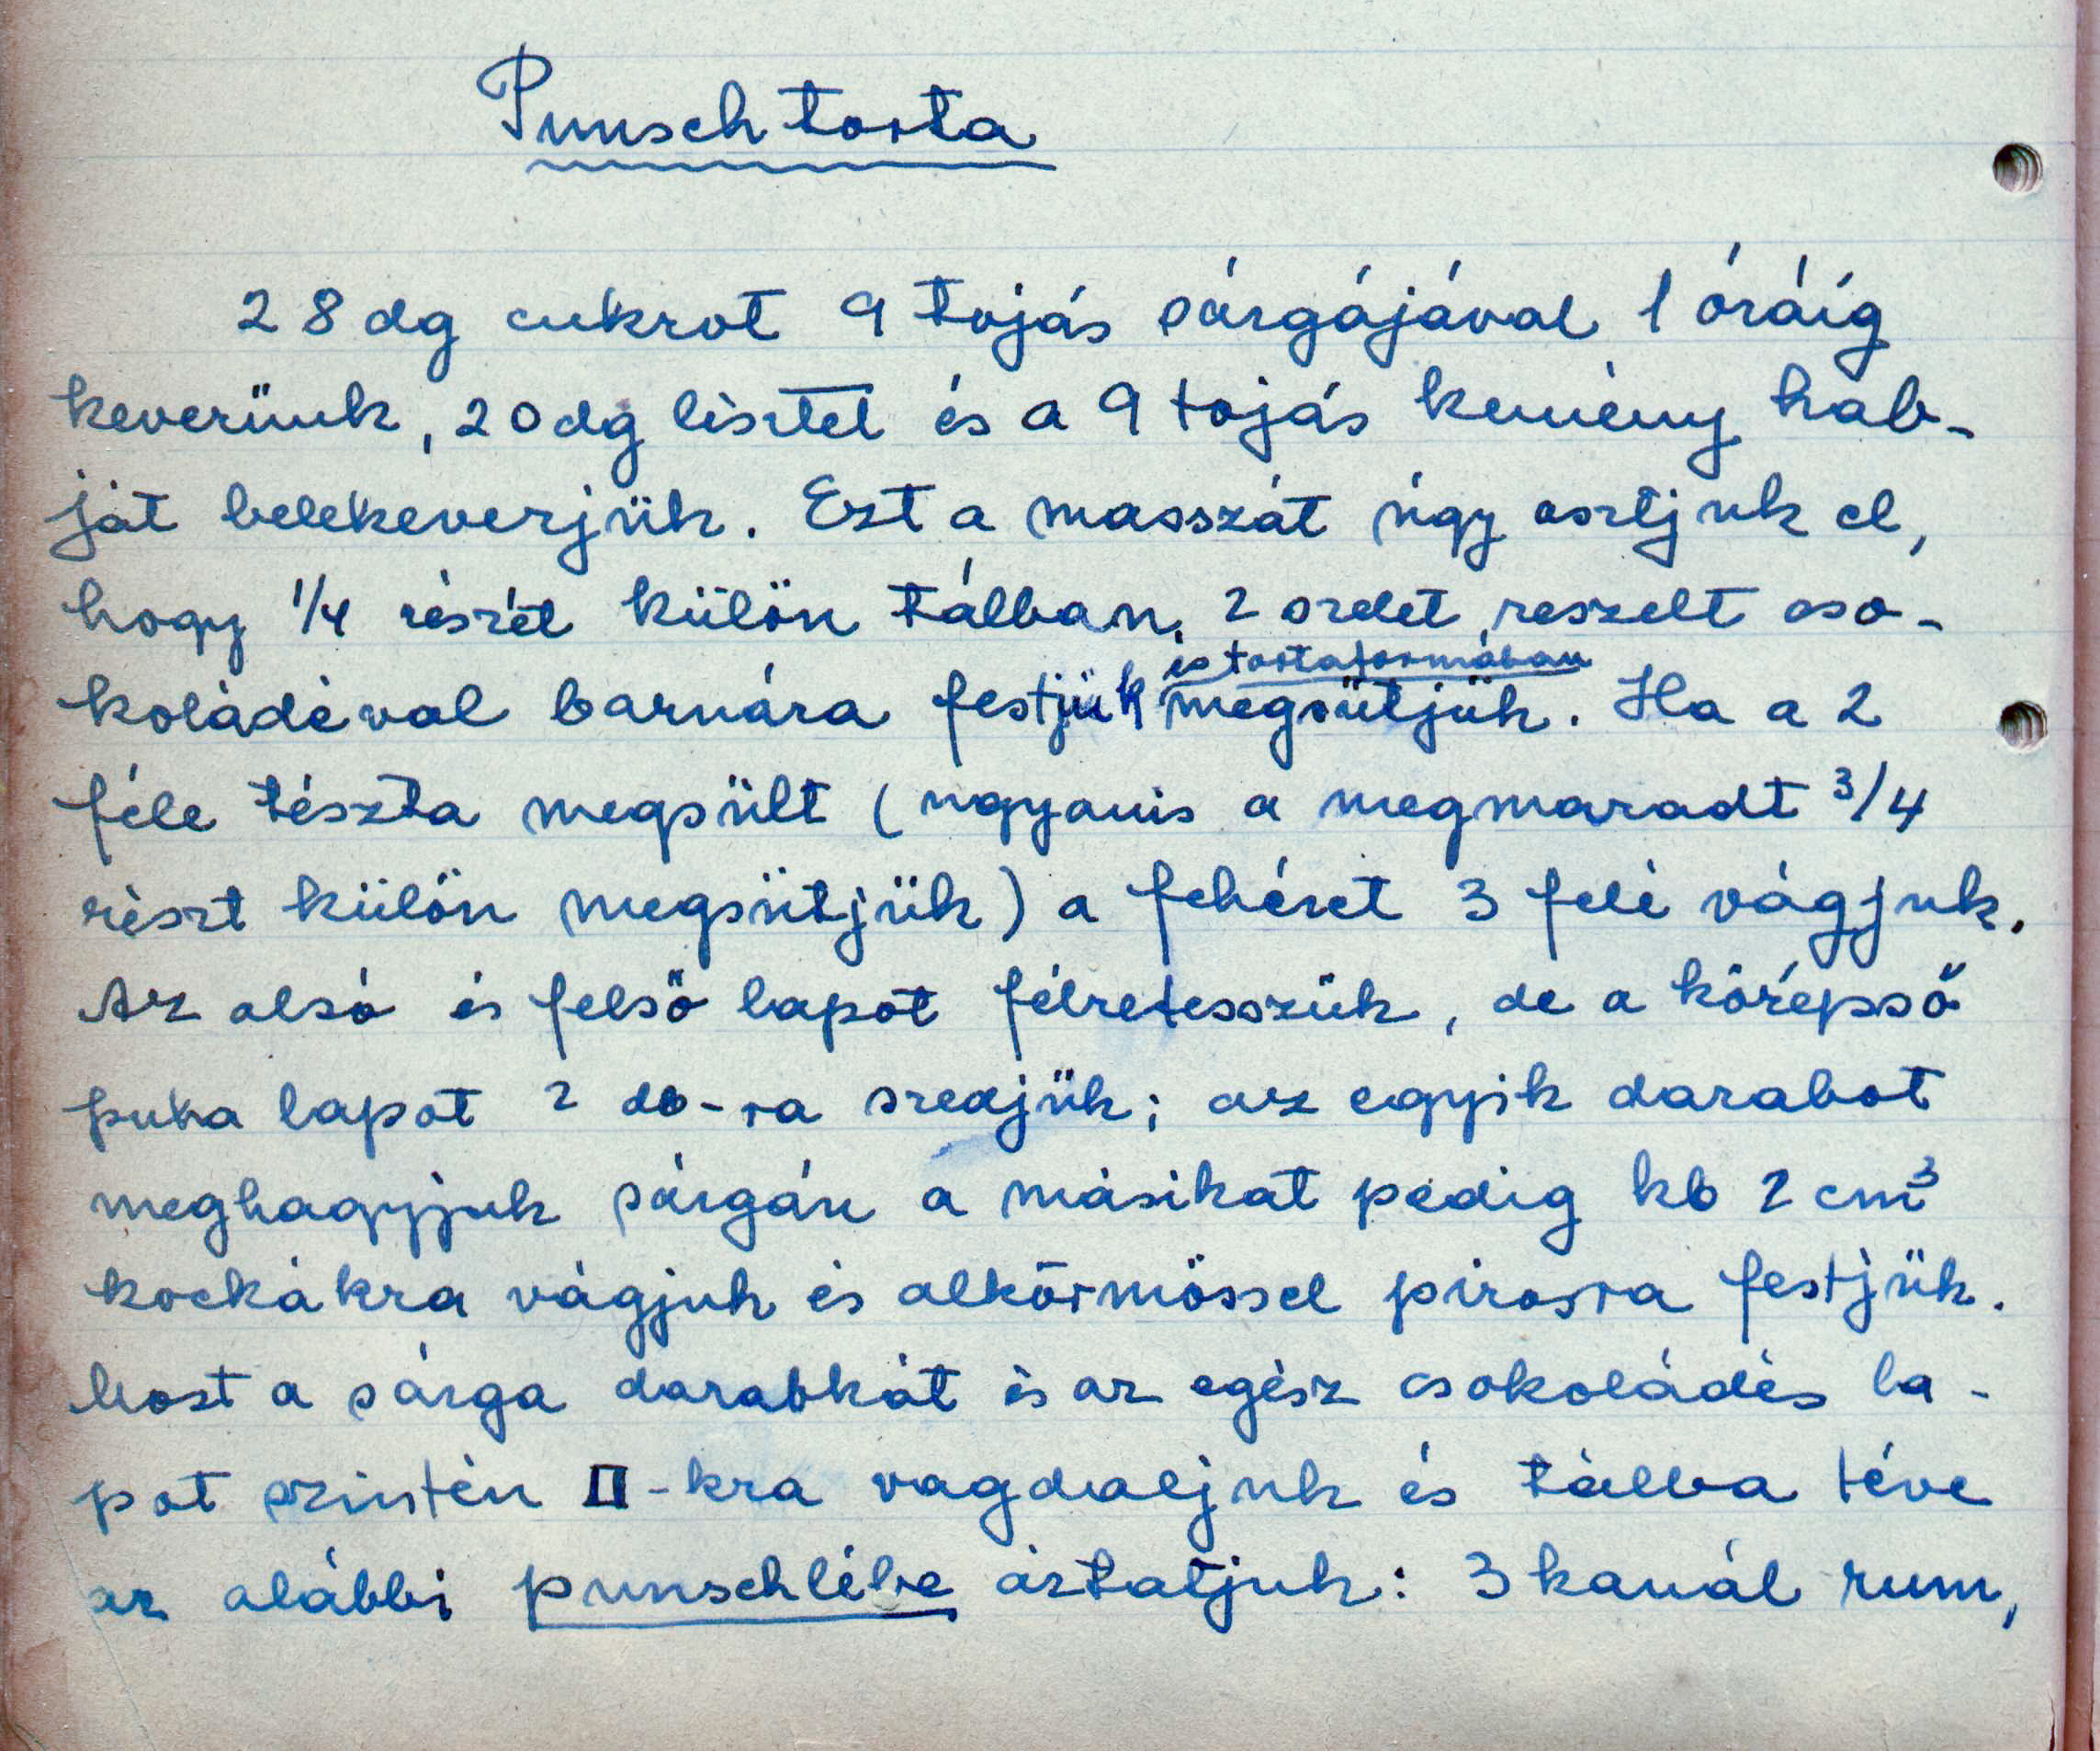 Punschtorta
28 dg cukrot 9 tojás sárgájával 1 óráig
keverünk, 20 dg lisztet és a 9 tojás kemény hab-
ját belekeverjük. Ezt a masszát úgy osztjuk el,
hogy 1/4 részét külön tálban, 2 szelet reszelt cso-
és tortaformában
koládéval barnára festjük megsütjük. Ha a 2
féle tészta megsült (ugyanis a megmaradt 3/4
részt külön megsütjük) a fehéret 3 felé vágjuk.
Az alsó és felső lapot félretesszük, de a középső
puha lapot 2 db-ra szedjük; az egyik darabot
meghagyjuk sárgán a másikat pedig kb 2 cm³
kockákra vágjuk és alkörmössel pirosra festjük.
Most a sárga darabkát és az egész csokoládés la-
pot szintén □-kra vagdaljuk és tálba téve
az alábbi punschlébe áztatjuk: 3 kanál rum,